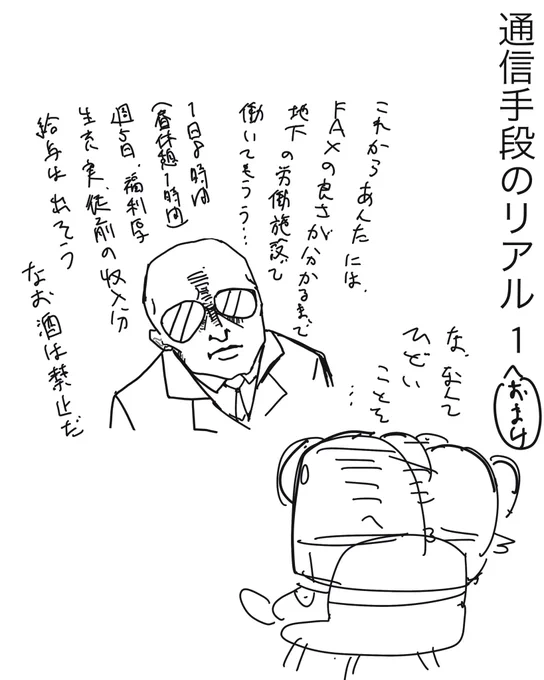 通信手段のリアル 1 へ
おまけ
これからあんたには、
FAXの良さが分かるまで
地下の労働施設で
働いてもらう…
1日8時間
(昼休憩1時間)
週5日、福利厚
生充実、従前の収入分
給与は出そう
なお酒は禁止だ
な、なんて
ひどい
ことを
…